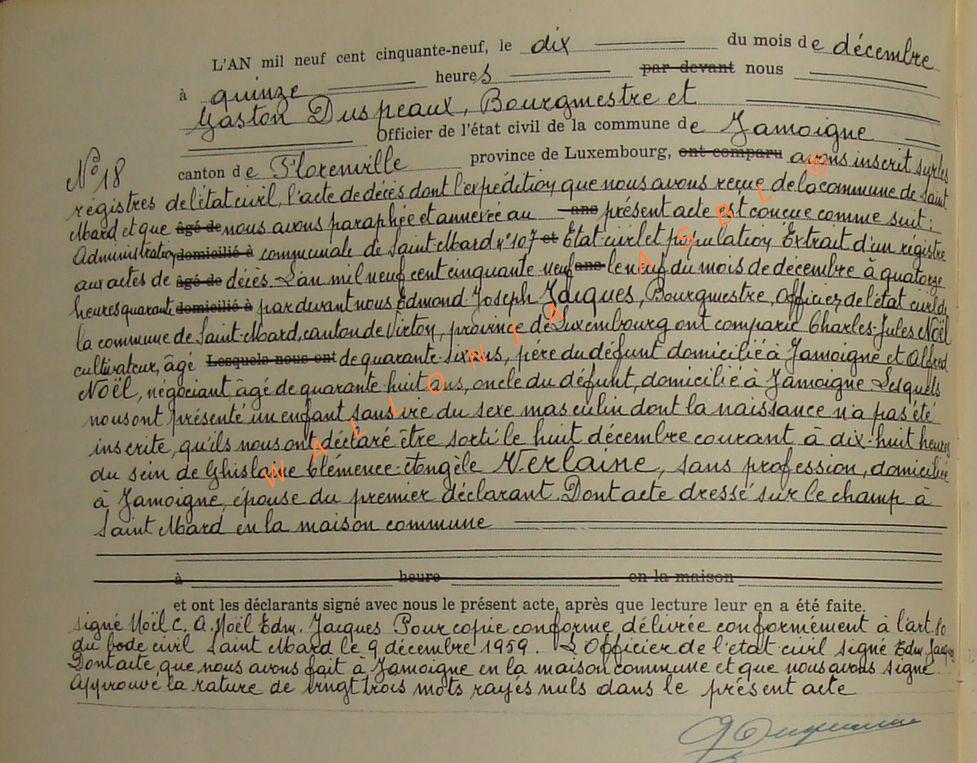 L'AN mil neuf cent cinquante-neuf, le dix du mois de décembre
à quinze heures par devant nous
Gaston Duspeaux, Bourgmestre et
Officier de l'état civil de la commune de Jamoigne
N° 18
canton de Florenville province de Luxembourg, ont comparu avons inscrit sur les
régistres de l'état civil, l'acte de décès dont l'expédition que nous avons reçue de la commune de Saint
Mard et que âgé de nous avons paraphée et annexée au ans présent acte est conçue comme suit :
Administration domicilié à communale de Saint Mard n° 107 et Etat civil et population Extrait d'un registre
aux actes de âgé de décès. L'an mil neuf cent cinquante neuf ans le neuf du mois de décembre à quatorze
heures quarante domicilié à par devant nous Edmond Joseph Jacques, Bourgmestre, Officier de l'état civil de
la commune de Saint-Mard, canton de Virton, province de Luxembourg ont comparu Charles-Jules Noël
cultivateur, âgé Lesquels nous ont de quarante-six ans, père du défunt domicilié à Jamoigne et Alfred
Noël, négociant âgé de quarante-huit ans, oncle du défunt, domicilié à Jamoigne Lesquels
nous ont présenté un enfant sans vie du sexe masculin dont la naissance n'a pas été
inscrite, qu'ils nous ont déclaré être sorti le huit décembre courant à dix-huit heures
du sein de Ghislaine Clémence-Angèle Verlaine, sans profession, domiciliée
à Jamoigne, épouse du premier déclarant. Dont acte dressé sur le champ à
Saint Mard en la maison commune
à heure en la maison
et ont les déclarants signé avec nous le présent acte, après que lecture leur en a été faite.
signé Noël C. A. Noël Edm. Jacques Pour copie conforme délivrée conformément à l'art. 80
du code civil Saint Mard le 9 décembre 1959. L'Officier de l'état civil signé Edm. Jacques
Dont acte que nous avons fait à Jamoigne en la maison commune et que nous avons signé.
Approuvé la rature de vingt trois mots rayés nuls dans le présent acte
WALLONIA ASBL ®